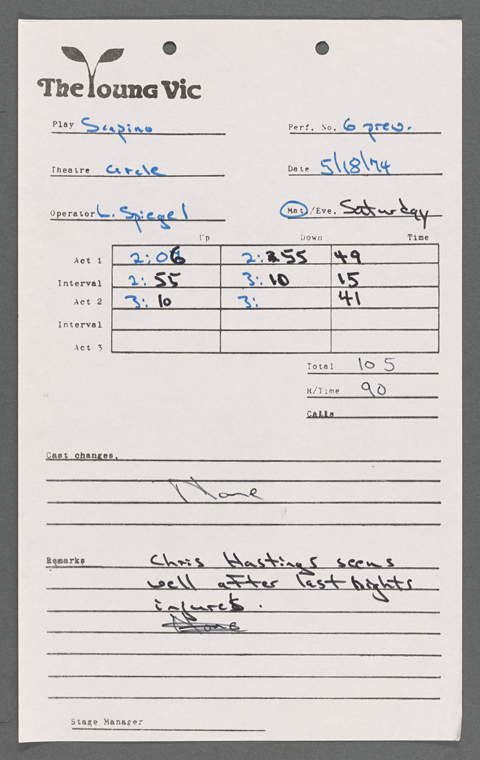 The Young Vic
Play Scapino Perf. No. 6 prev.
Theatre Circle Date 5/18/74
Operator L. Spiegel Mat/Eve. Saturday
Up Down Time
Act 1 2:06 2:55 49
Interval 2:55 3:10 15
Act 2 3:10 3: 41
Interval
Act 3
Total 105
R/Time 90
Calls
Cast changes.
None
Remarks Chris Hastings seems
well after last nights
injures.
None
Stage Manager